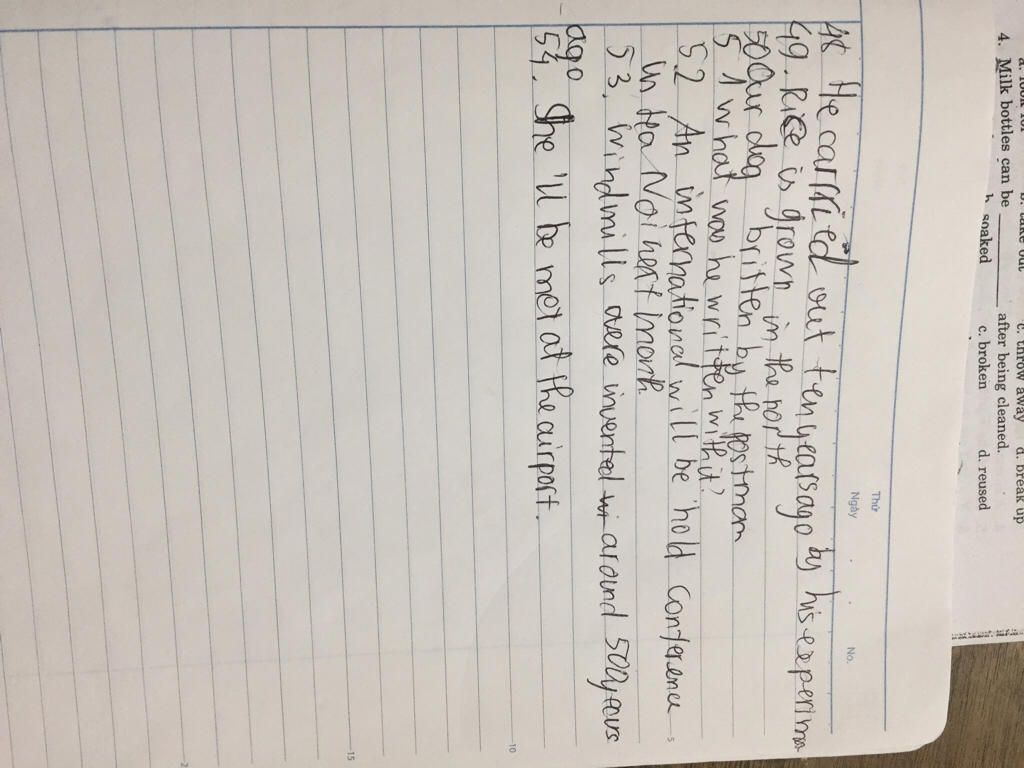 a. look for b. take out c. throw away d. break up
4. Milk bottles can be ________ after being cleaned.
b. soaked c. broken d. reused
Thứ
Ngày No.
48 He carried out ten years ago by his experimen
49. Rice is grown in the north
50 Our dog britten by the postman
51 what was he written with it?
52 An international will be hold conference
in Ha Noi next month
53. Windmills were invented around 500 years
ago
54. She 'll be met at the airport.
5
10
15
2